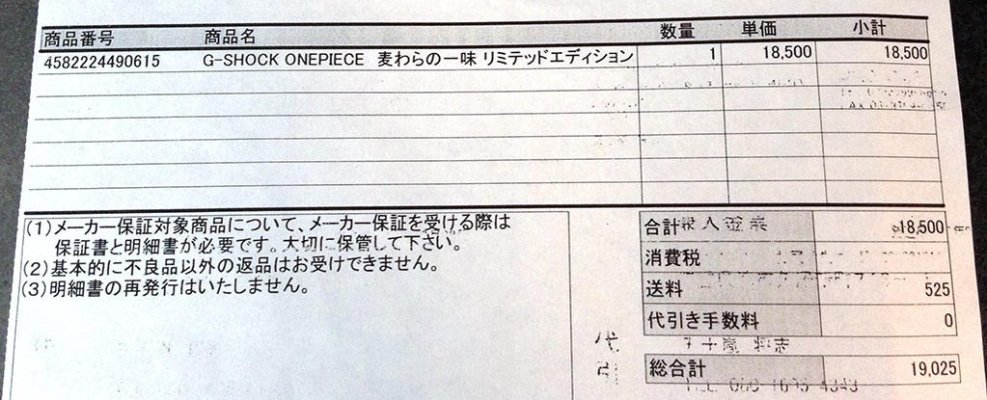 商品番号 商品名 数量 単価 小計
4582224490615 G-SHOCK ONEPIECE 麦わらの一味 リミテッドエディション 1 18,500 18,500
(1)メーカー保証対象商品について、メーカー保証を受ける際は
保証書と明細書が必要です。大切に保管して下さい。
(2)基本的に不良品以外の返品はお受けできません。
(3)明細書の再発行はいたしません。
合計 18,500
消費税
送料 525
代引き手数料 0
代
引
総合計 19,025